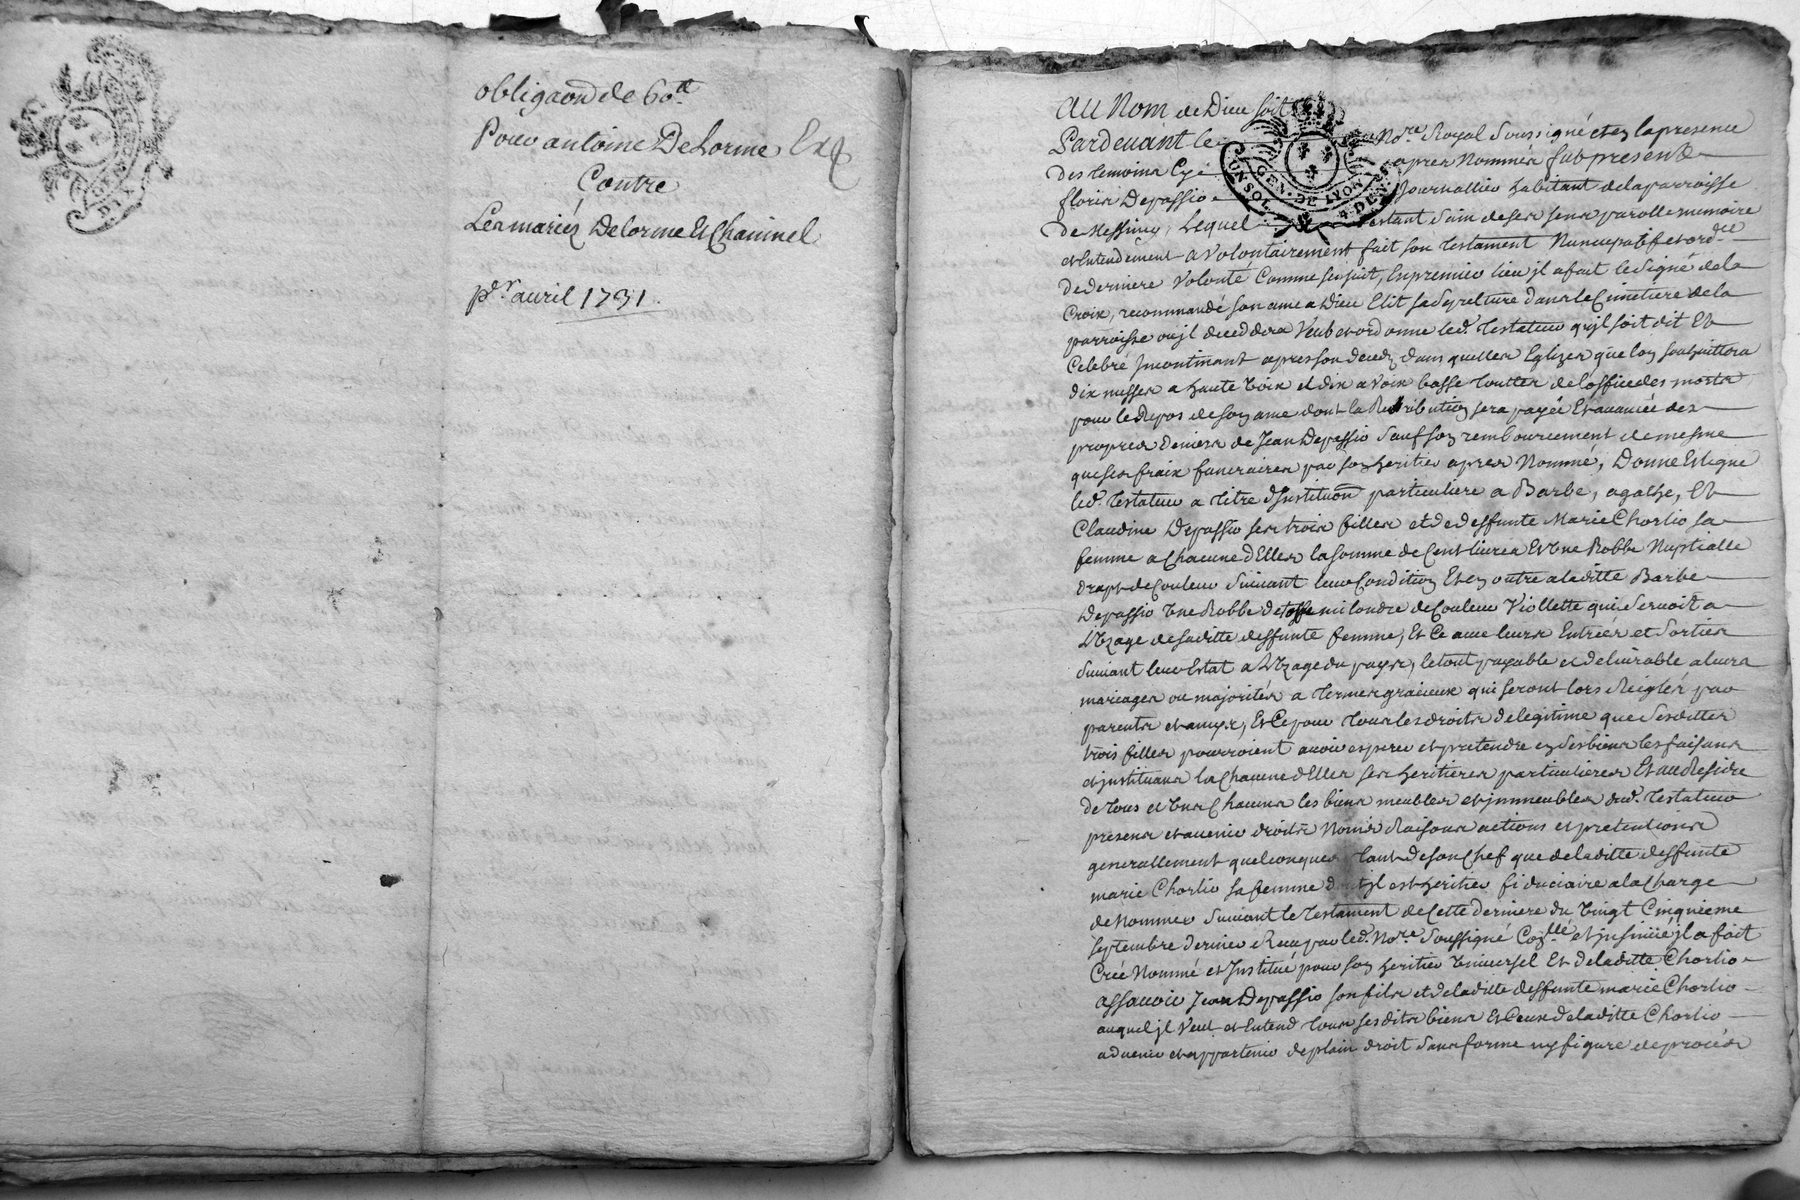 obligaon de 60ᵗᵗ
Pour antoine DeLorme Exᵉ
Contre
Les mariéz Delorme Et Chaninel
pᵉʳ avril 1731
GEN. DE LYON
UN SOL 4 DEN.
AU Nom de Dieu soit
Pardevant le Noʳᵉ Royal Soussigné et en la presence
des temoins apres Nommés fut present
floris Depassio Journallier habitant de la parroisse
de Messimy, Lequel estant Sain de ses sens parolle memoire
et Entendement a volontairement fait son Testament Nuncupatif et ordᶜᵉ
de derniere volonté Comme sensuit, En premier lieu jl a fait le Signe de la
Croix, recommandé son ame a Dieu Elit sa Sepulture dans le Cimetiere de la
parroisse ou jl decedera Veut et ordonne led. Testateur qujl soit dit Et
Celebré jncontinant apres son decedz dans quelles Eglizes que lon souhaittera
dix messes a haute voix et dix a voix basse Touttes de loffice des morts
pour le Repos de son ame dont la Retribution sera payée Et avancée des
propres deniers de Jean Depassio Sauf son remboursement de mesme
que ses fraix funeraires par son heritier apres Nommé, Donne Et legue
led. Testateur a Titre dJnstituon particuliere a Barbe, agathe, Et
Claudine Depassio ses trois filles et de deffunte Marie Chorlio sa
femme a Chacune dElles la somme de Cent livres Et Une Robbe Nuptialle
drapt de Couleur Suivant leur Condition Et en outre a laditte Barbe
Depassio Une Robbe detoffe de Couleur Viollette qui Servoit a
LUzage de saditte deffunte femme, Et Ce avec leurs Entrées et Sorties
Suivant leur Estat a LUzage du pays, le tout payable et delivrable a leurs
mariages ou majorités a Termes gracieux qui seront lors Reiglés par
parents et amys, Et Ce pour Tous les droits de legitime que Sesdittes
trois filles pourroient avoir esperer et pretendre en Ses biens les faisans
et jnstituans la Chacune dElles ses heritieres particulieres Et au Reside
de Tous et Uns Chacuns les biens meubles et jmmeubles dud. Testateur
presens et avenir droits Noms Raisons actions et pretentions
generallement quelconques Tant de son Chef que de laditte deffunte
marie Chorlio sa femme dont jl est heritier fiduciaire a la Charge
de Nommer Suivant le Testament de Cette derniere du Vingt Cinquieme
septembre dernier Receu par led. Noʳᵉ Soussigné Conˡˡᵉ et jnsinüé jl a fait
Créé Nommé et Jnstitué pour son heritier Universel Et de laditte Chorlio
assavoir Jean Depassio son fils et de laditte deffunte marie Chorlio
auquel jl Veut et Entend Tous sesdits biens Et Ceux de laditte Chorlio
advenir et appartenir de plain droit Sans forme ny figure de procés